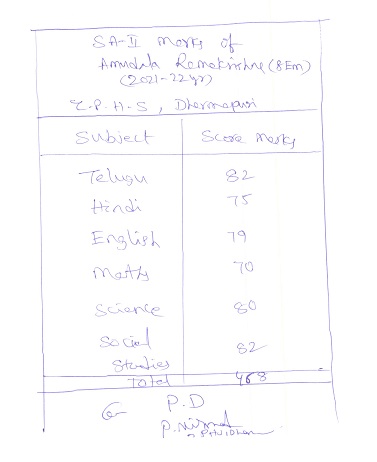 SA-II Marks of
Ramakrishna (8 Em)
(2021-22 yr)
Z.P.H.S, Dharmapuri
Subject Score Marks
Telugu 82
Hindi 75
English 79
Maths 70
Science 80
Social 82
Studies
Total 468
P.D